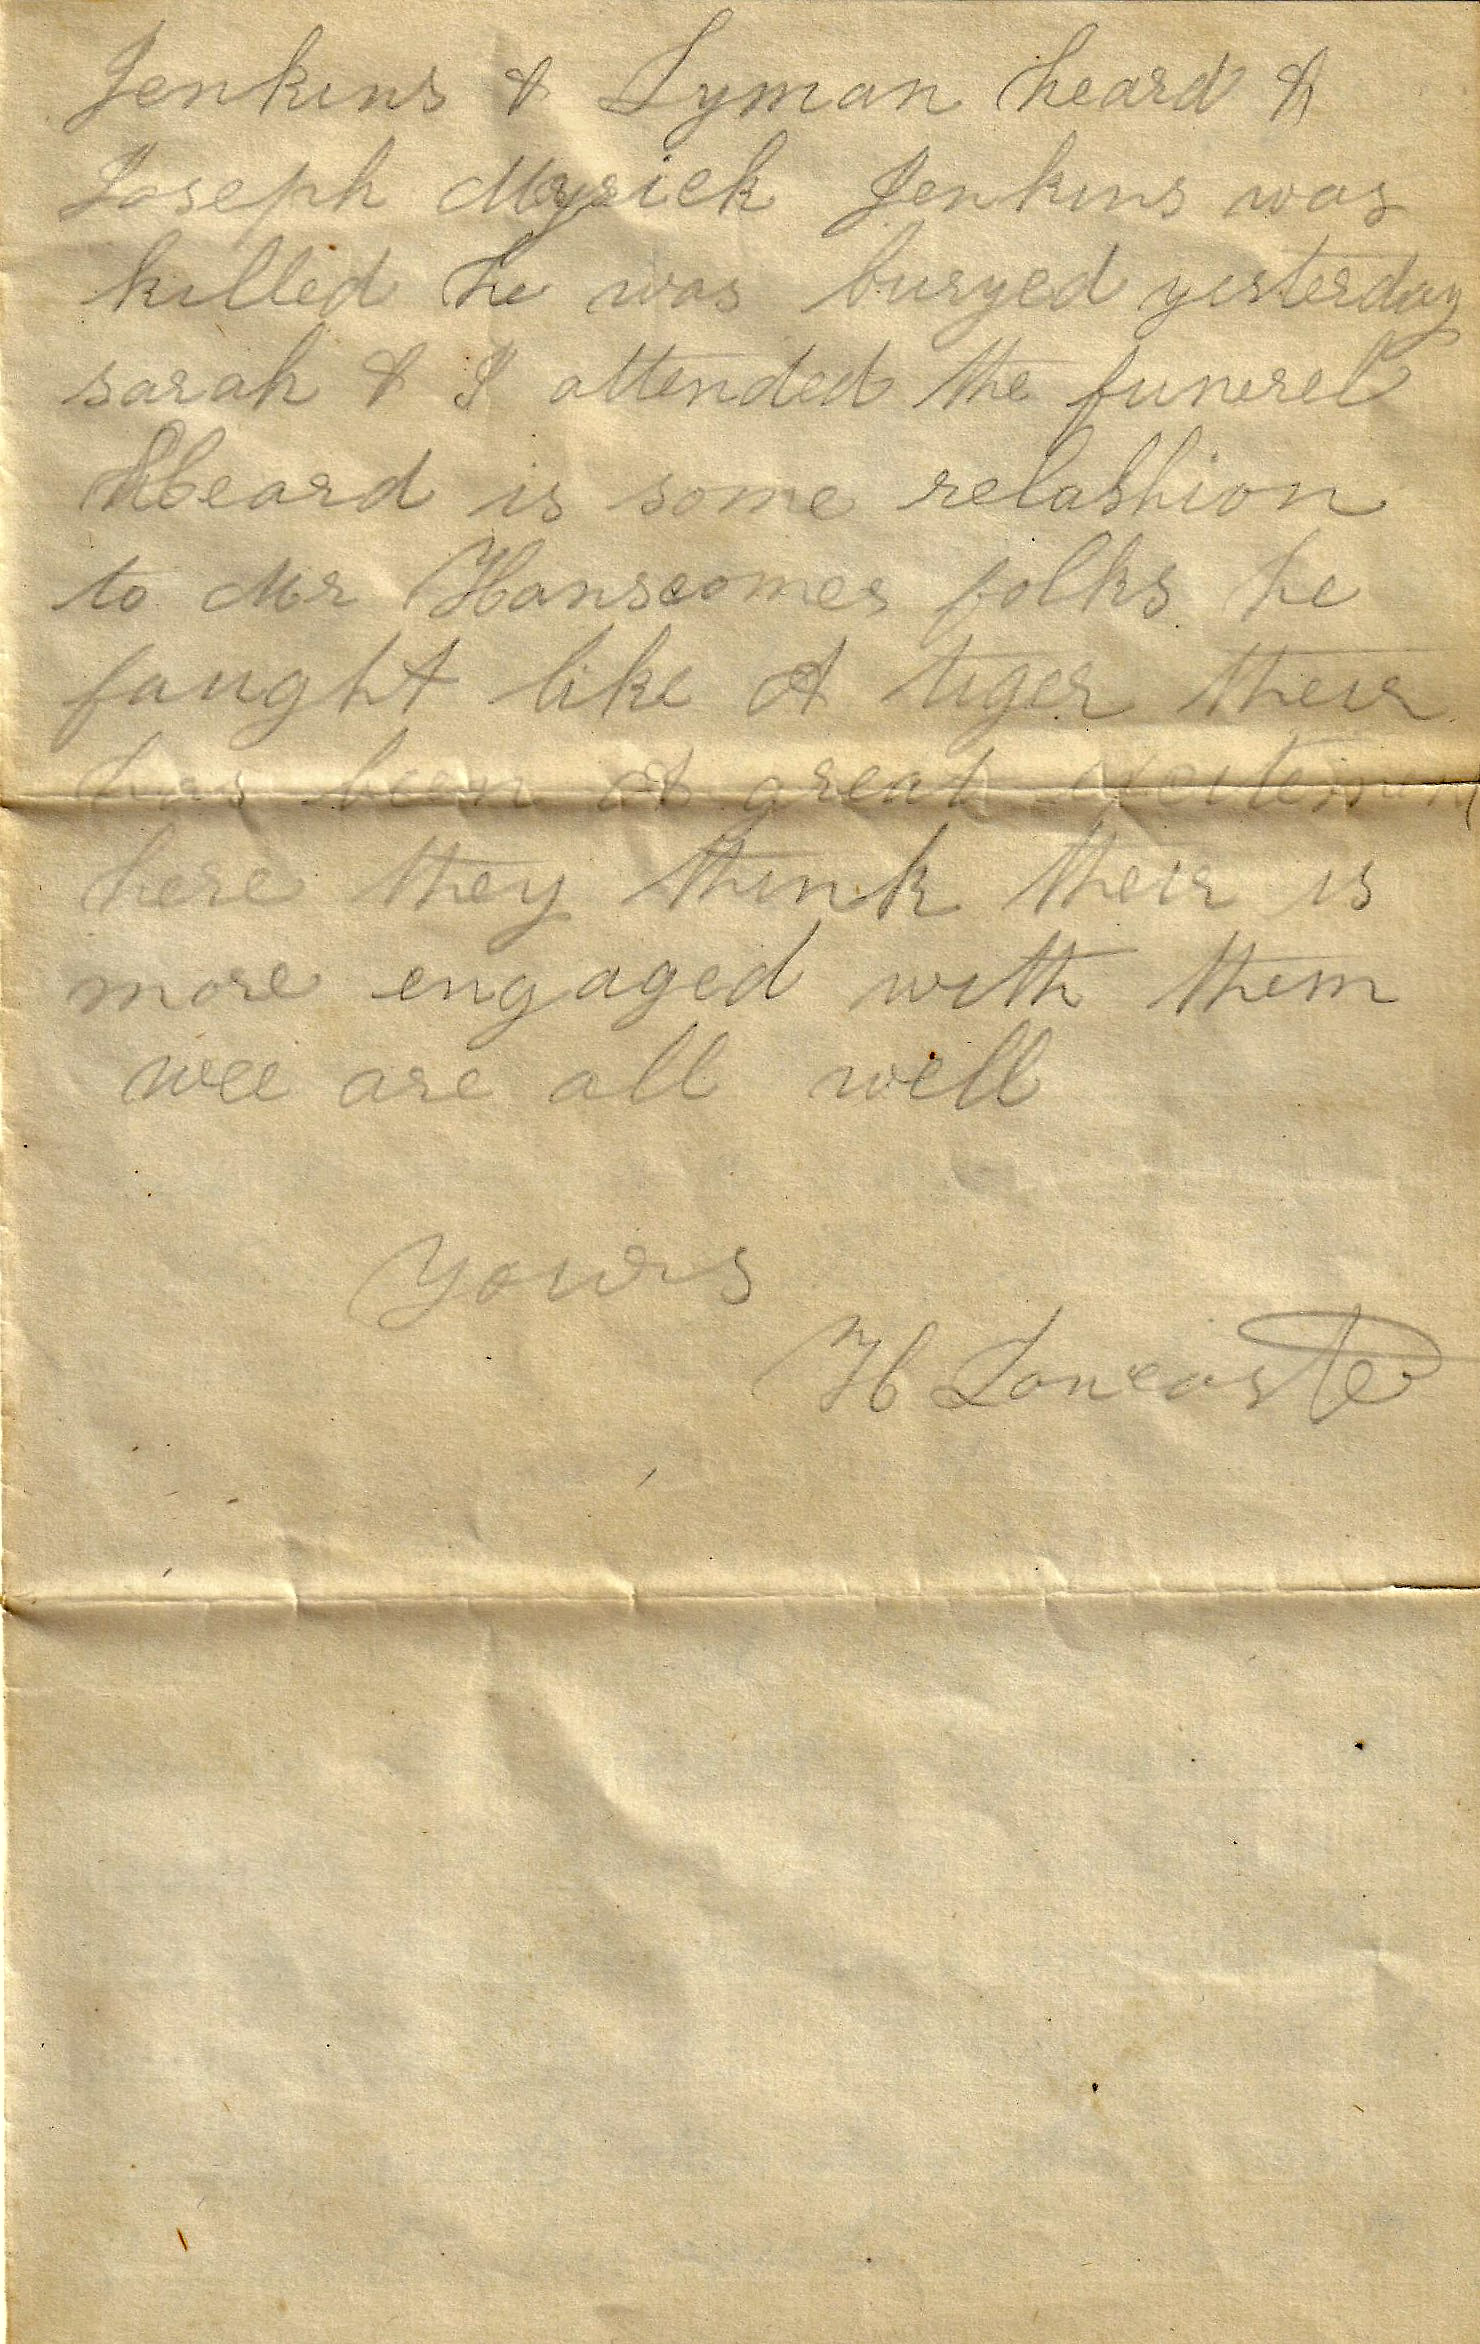 Jenkins & Lyman heard &
Joseph Myrick Jenkins was
killed he was buryed yesterday
sarah & I attended the funerel
Heard is some relashion
to Mr Hanscomes folks he
faught like A tiger their
has been A great excitement
here they think their is
more engaged with them
wee are all well
Yours
H Lancaster